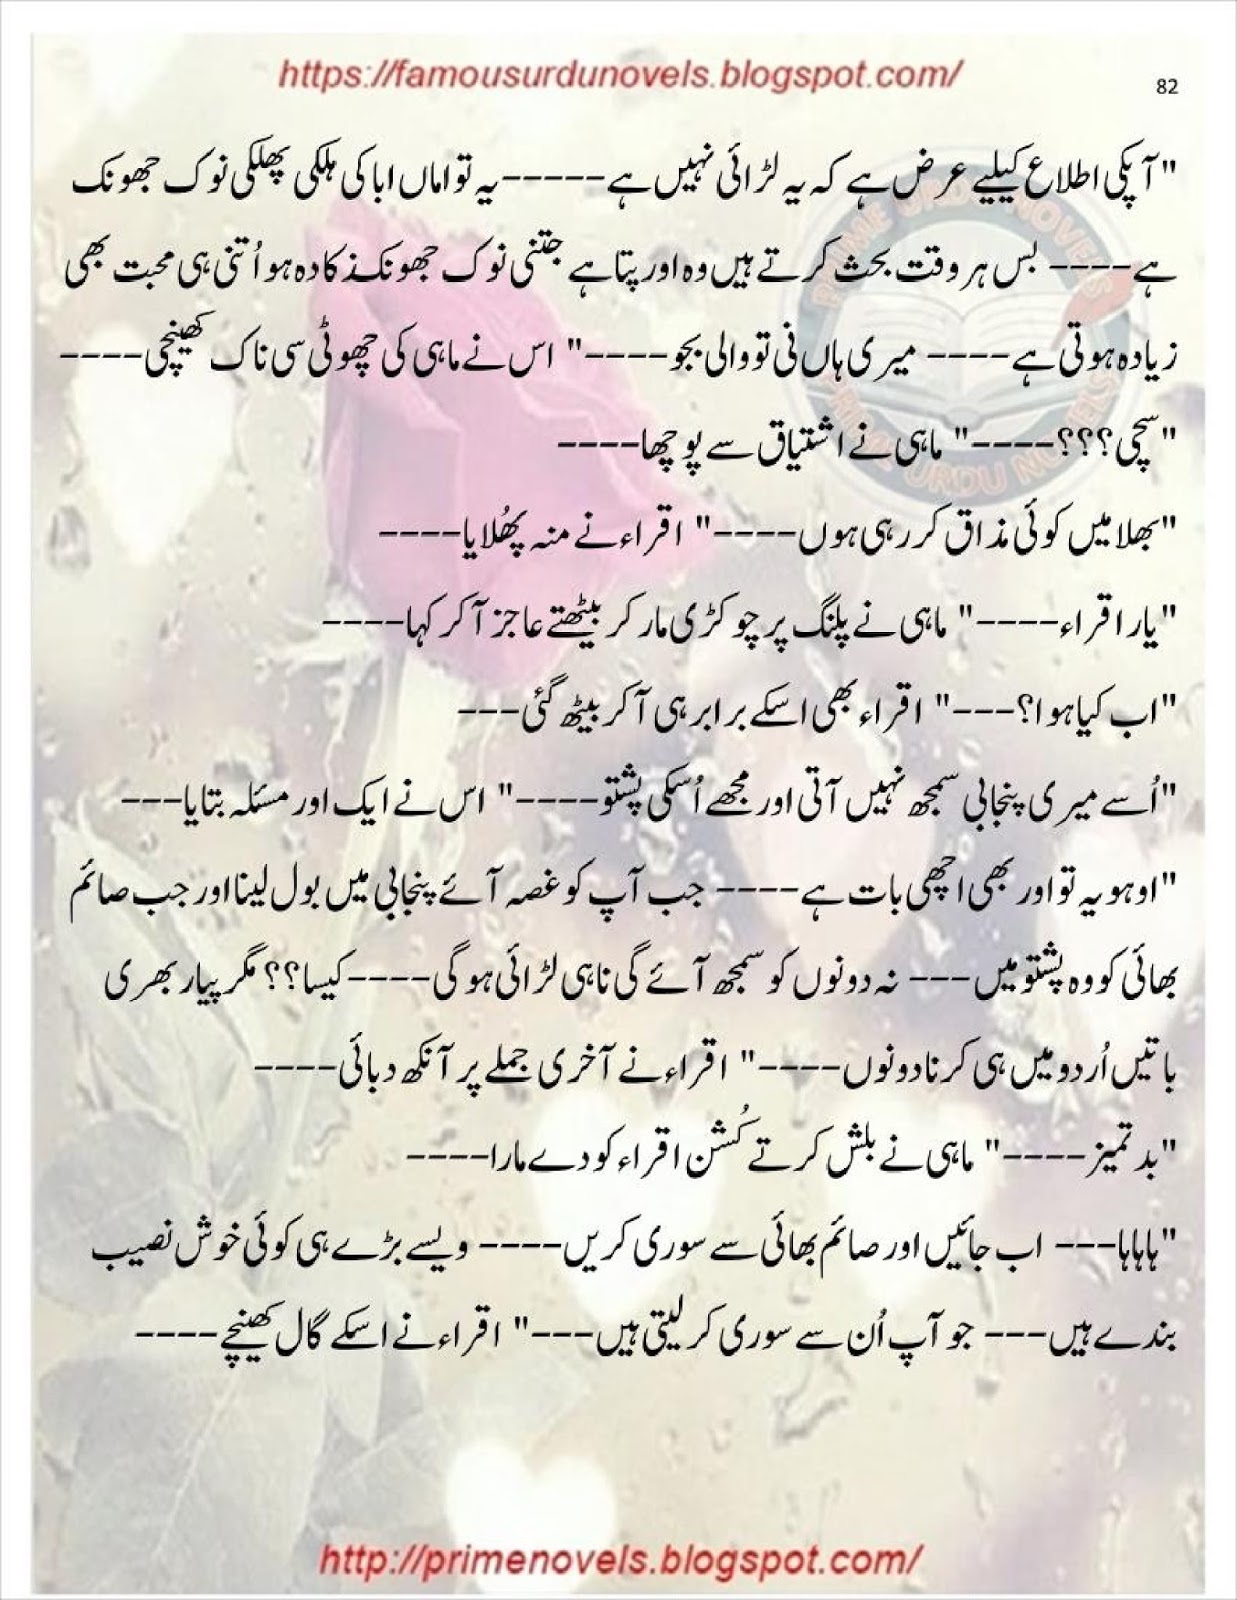 https://famousurdunovels.blogspot.com/
82
"آپکی اطلاع کیلیے عرض ہے کہ یہ لڑائی نہیں ہے-----یہ تو اماں ابا کی ہلکی پھلکی نوک جھونک
ہے---- بس ہر وقت بحث کرتے ہیں وہ اور پتا ہے جتنی نوک جھونک ذکادہ ہو اُتنی ہی محبت بھی
زیادہ ہوتی ہے---- میری ہاں نی تو والی بجو----" اس نے ماہی کی چھوٹی سی ناک کھینچی----
"سچی؟؟؟----" ماہی نے اشتیاق سے پوچھا----
"بھلا میں کوئی مذاق کر رہی ہوں----" اقراء نے منہ پھُلایا----
"یار اقراء----" ماہی نے پلنگ پر چوکڑی مار کر بیٹھتے عاجز آکر کہا----
"اب کیا ہوا؟---" اقراء بھی اسکے برابر ہی آکر بیٹھ گئی---
"اُسے میری پنجابی سمجھ نہیں آتی اور مجھے اُسکی پشتو----" اس نے ایک اور مسئلہ بتایا---
"اوہو یہ تو اور بھی اچھی بات ہے---- جب آپ کو غصہ آئے پنجابی میں بول لینا اور جب صائم
بھائی کو وہ پشتو میں--- نہ دونوں کو سمجھ آئے گی ناہی لڑائی ہوگی----کیسا؟؟ مگر پیار بھری
باتیں اُردو میں ہی کرنا دونوں----" اقراء نے آخری جملے پر آنکھ دبائی----
"بدتمیز----" ماہی نے بلش کرتے کُشن اقراء کو دے مارا----
"ہاہاہا--- اب جائیں اور صائم بھائی سے سوری کریں---- ویسے بڑے ہی کوئی خوش نصیب
بندے ہیں--- جو آپ اُن سے سوری کر لیتی ہیں---" اقراء نے اسکے گال کھینچے----
http://primenovels.blogspot.com/